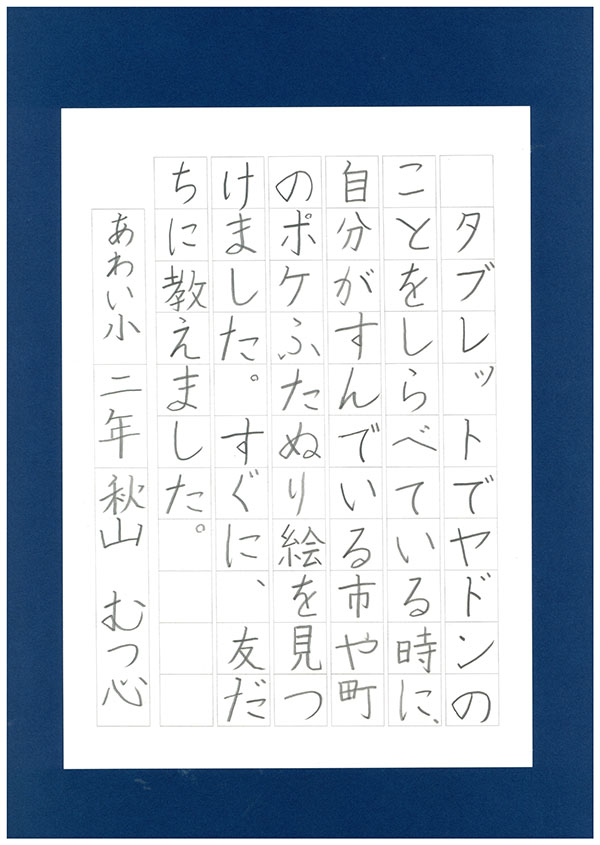 タブレットでヤドンの
ことをしらべている時に、
自分がすんでいる市や町
のポケふたぬり絵を見つ
けました。すぐに、友だ
ちに教えました。
あわい小 二年 秋山 むつ心